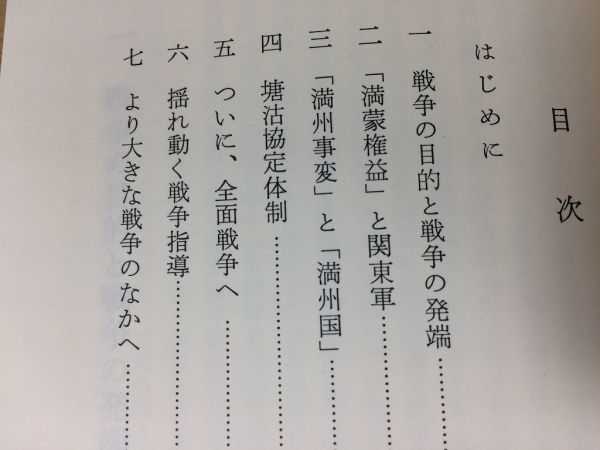 目次
はじめに
一 戦争の目的と戦争の発端………
二 「満蒙権益」と関東軍………
三 「満州事変」と「満州国」………
四 塘沽協定体制………
五 ついに、全面戦争へ………
六 揺れ動く戦争指導………
七 より大きな戦争のなかへ………